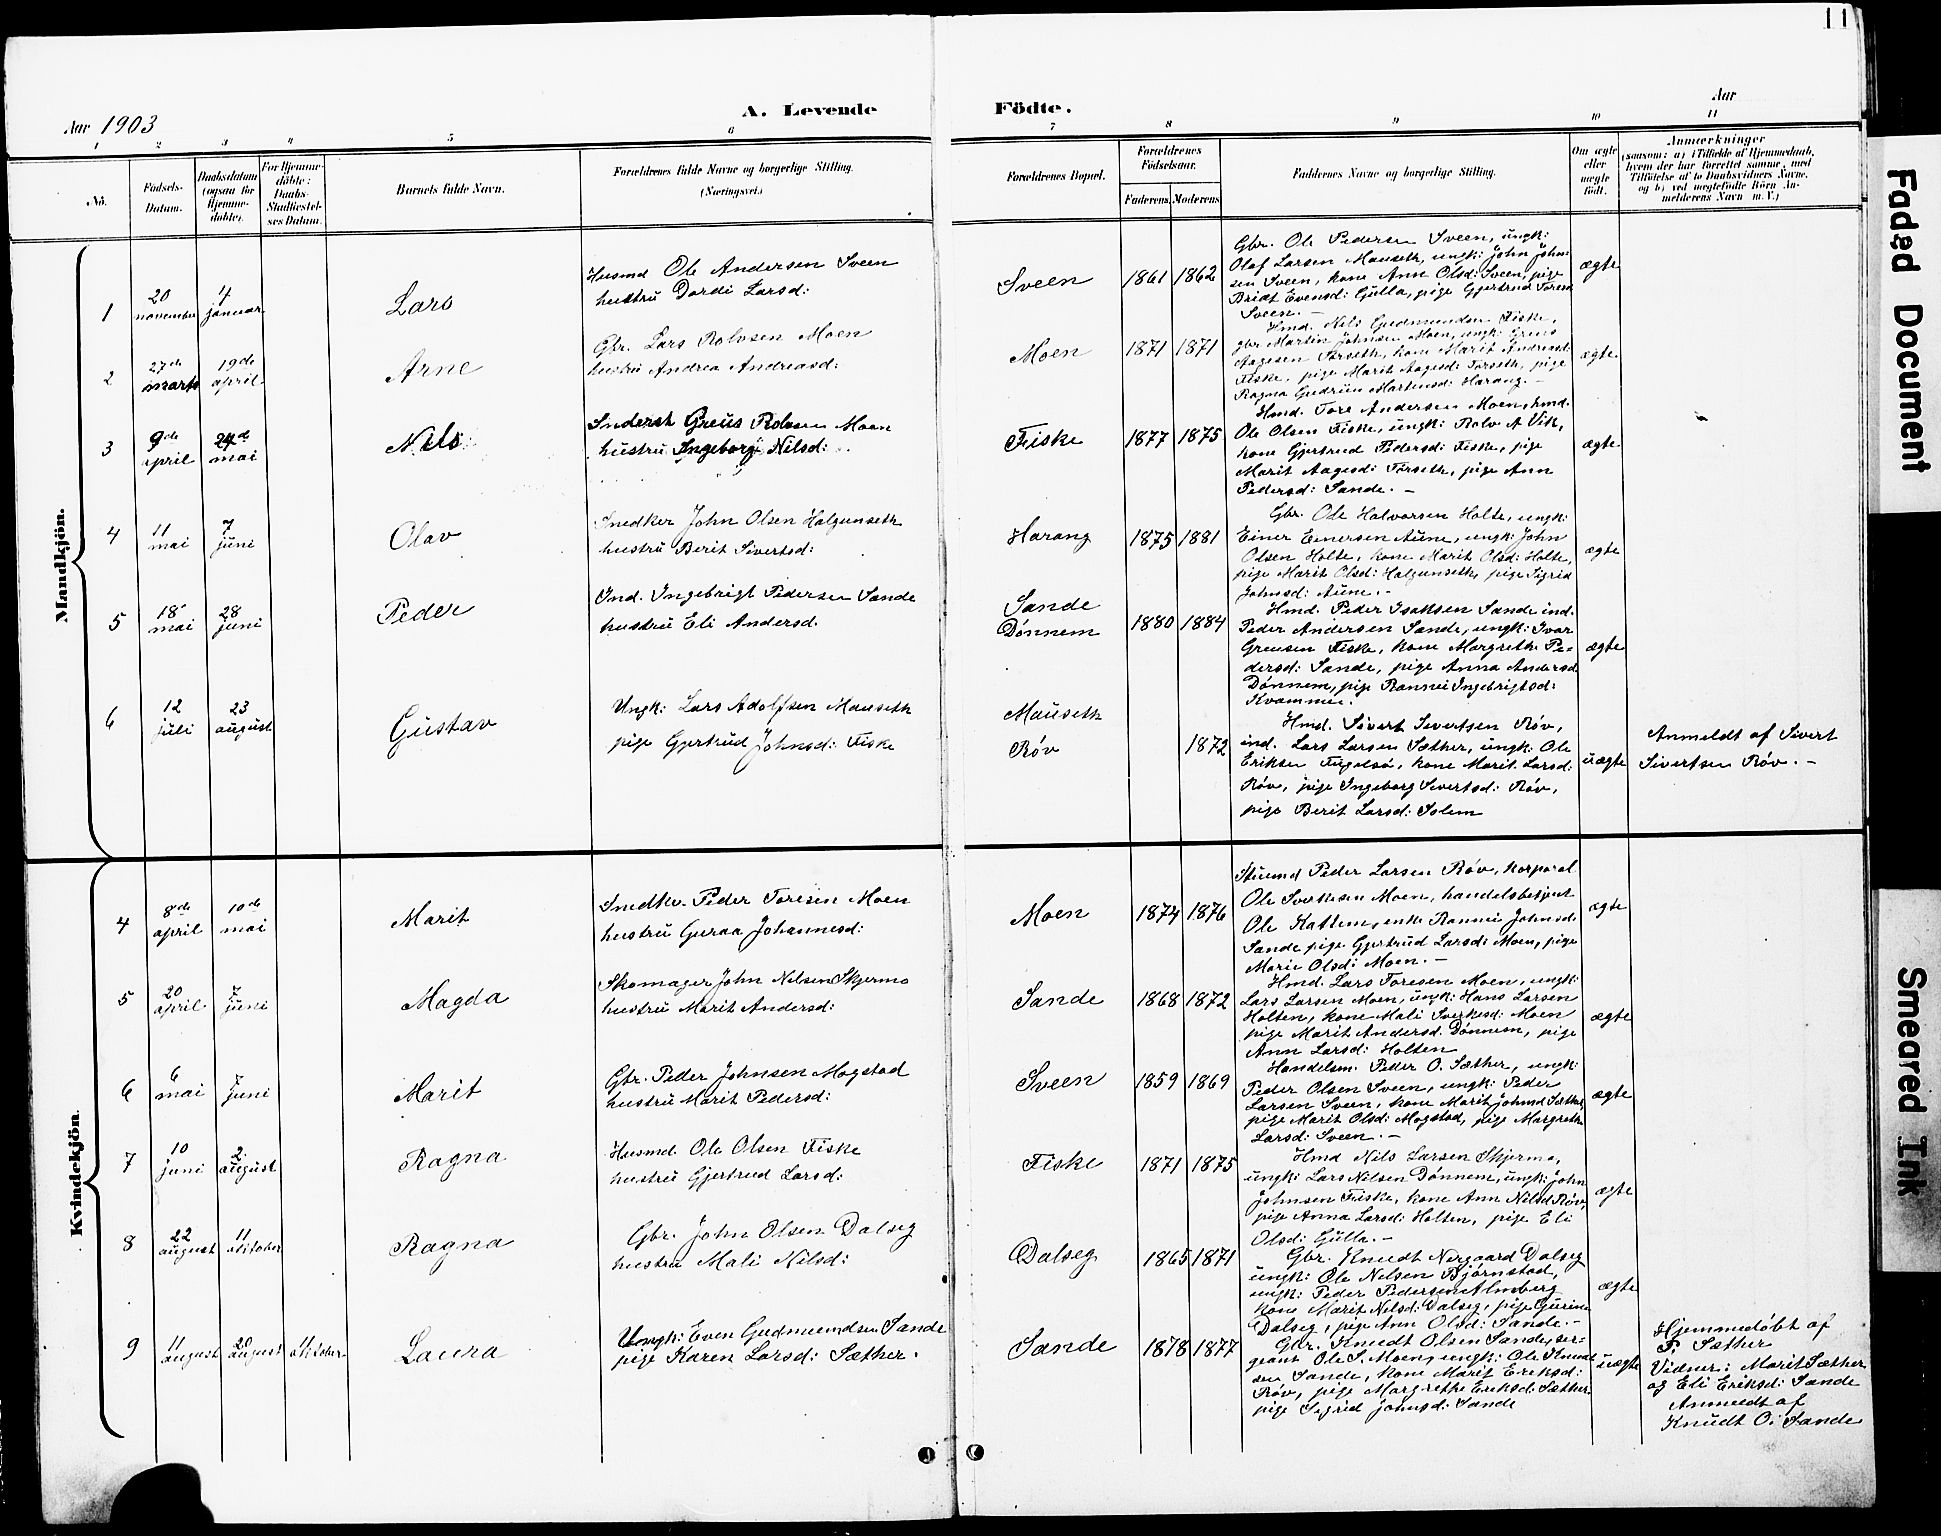 11
A. Levende Födte.
Aar 1903
Aar
1 2 3 4 5 6 7 8 9 10 11
No.
Födsels-Datum.
Daabsdatum (ogsaa for Hjemmedöbte).
For Hjemmedöbte: Daabs-Stadfæstelses Datum.
Barnets fulde Navn.
Forældrenes fulde Navne og borgerlige Stilling. (Næringsvei.)
Forældrenes Bopæl.
Forældrenes Födselsaar.
Faderens. Moderens.
Faddernes Navne og borgerlige Stilling.
Om ægte eller uægte födt.
Anmærkninger
(saasom: a) i Tilfælde af Hjemmedaab, hvem der har forrettet samme, med Tilföielse af to Daabsvidners Navne, og b) ved uægtefödte Börn Anmelderens Navn m. V.)
Mandkjön.
1
20 november
4 januar
Lars
Husmd Ole Andersen Sveen
hustru Dordi Larsd:
Sveen
1861 1862
Gbr. Ole Pedersen Sveen, ungk:
Olaf Larsen Mauseth, ungk: John John-
sen Sveen, kone Ann Olsd: Sveen, pige
Briat Evensd: Gulla, pige Gjertrud Toresd
Sveen. –
ægte
2
27de marts
19de april
Arne
Gbr. Lars Rolvsen Moen
hustru Andrea Andreasd:
Moen
1871 1871
Hmd. Nils Gudmundsen Fiske,
gbr Martin Johnsen Moen, ungk: Greus
Aagesen Førseth, kone Marit Andreasd:
Fiske, pige Marit Aagesd: Førseth, pige
Ragna Gudrun Martensd: Harang. –
ægte
3
9de april
24de mai
Nils
Inderst Greus Rolvsen Moen
hustru Ingeborg Nilsd:
Fiske
1877 1875
Hmd. Tore Andersen Moen, hmd.
Ole Olsen Fiske, ungk: Rolv A Vik,
kone Gjertrud Pedersd: Fiske, pige
Marit Aagesd: Førseth, pige Ann
Pedersd: Sande. –
ægte
4
11 mai
7 juni
Olav
Snedker John Olsen Halgunseth
hustru Berit Sivertsd:
Harang
1875 1881
Gbr. Ole Halvorsen Holte, ungk:
Einer Einersen Aune, ungk: John
Olsen Holte, kone Marit Olsd: Holte,
pige Marit Olsd: Halgunseth, pige Sigrid
Johnsd: Aune. –
ægte
5
18 mai
28 juni
Peder
Ind. Ingebrigt Pedersen Sande
hustru Eli Andersd.
Sande
Dønnem
1880 1884
Hmd. Peder Isaksen Sande ind.
Peder Andersen Sande, ungk: Ivar
Greusen Fiske, kone Margrethe Pe-
dersd: Sande, pige Anna Andersd
Dønnem, pige Rannei Ingebrigtsd:
Kvammen.
ægte
6
12 juli
23 august
Gustav
Ungk: Lars Adolfsen Mauseth
pige Gjertrud Johnsd: Fiske
Mauseth
Røv
1872
Hmd. Sivert Sivertsen Røv,
ind. Lars Larsen Sæther, ungk: Ole
Eriksen Fugelsø, kone Marit Larsd:
Røv, pige Ingeborg Sivertsd: Røv,
pige Berit Larsd: Solem
uægte
Anmeldt af Sivert
Sivertsen Røv. –
Kvindekjön.
4
8de april
10de mai
Marit
Snedker Peder Toresen Moen
hustru Guraa Johannesd:
Moen
1874 1876
Peder Larsen Røv, korporal
Ole Sverkesen Moen, handelsbetjent
Ole Kattem, enke Rannei Johnsd.
Sande pige Gjertrud Larsd: Moen, pige
Marie Olsd: Moen. –
ægte
5
20 april
7 juni
Magda
Skomager John Nilsen Skjermo
hustru Marit Andersd:
Sande
1868 1872
Hmd. Lars Toresen Moen, ungk:
Lars Larsen Moen, ungk: Hans Larsen
Holten, kone Mali Sverkesd: Moen
pige Marit Andersd. Dønnem, pige
Ann Larsd: Holten
ægte
6
6 mai
7 juni
Marit
Gbr. Peder Johnsen Mogstad
hustru Marit Pedersd:
Sveen
1859 1869
Handelsm. Peder O. Sæther, ungk:
Peder Olsen Sveen, ungk: Peder
Larsen Sveen, kone Marit Johnsd Sæther,
pige Marit Olsd: Mogstad, pige Margrethe
Larsd: Sveen. –
ægte
7
10 juni
2 august
Ragna
Husmd. Ole Olsen Fiske
hustru Gjertrud Larsd:
Fiske
1871 1875
Hmd Nils Larsen Skjermo,
ungk: Lars Nilsen Dønnem, ungk: John
Johnsen Fiske, kone Ann Nilsd Røv,
pige Anna Larsd: Holten, pige Eli
Olsd: Gulla. –
ægte
8
22 august
11 oktober
Ragna
Gbr. John Olsen Dalseg
hustru Mali Nilsd:
Dalseg
1865 1871
Gbr. Knudt Nergaard Dalseg
ungk: Ole Nelsen Bjørnstad,
ungk: Peder Pedersen Almberg
kone Marit Nilsd: Dalseg, pige Gurine
Dalseg, pige Ann Olsd: Sande. –
ægte
9
11 august
20 august
11 oktober
Laura
Ungk: Even Gudmundsen Sande
pige Karen Larsd: Sæther.
Sande
1878 1877
Gbr. Knudt Olsen Sande, ser-
geant Ole S. Moen, ungk: Ole Knud-
sen Sande, kone Marit Eriksd:
Røv, pige Margrethe Eriksd: Sæther
pige Sigrid Johnsd: Sande
uægte
Hjemmedøbt af
P. Sæther
Vidner: Marit Sæther
og Eli Eriksd: Sande
Anmeldt af
Knudt O. Sande
Faded Document
Smeared Ink